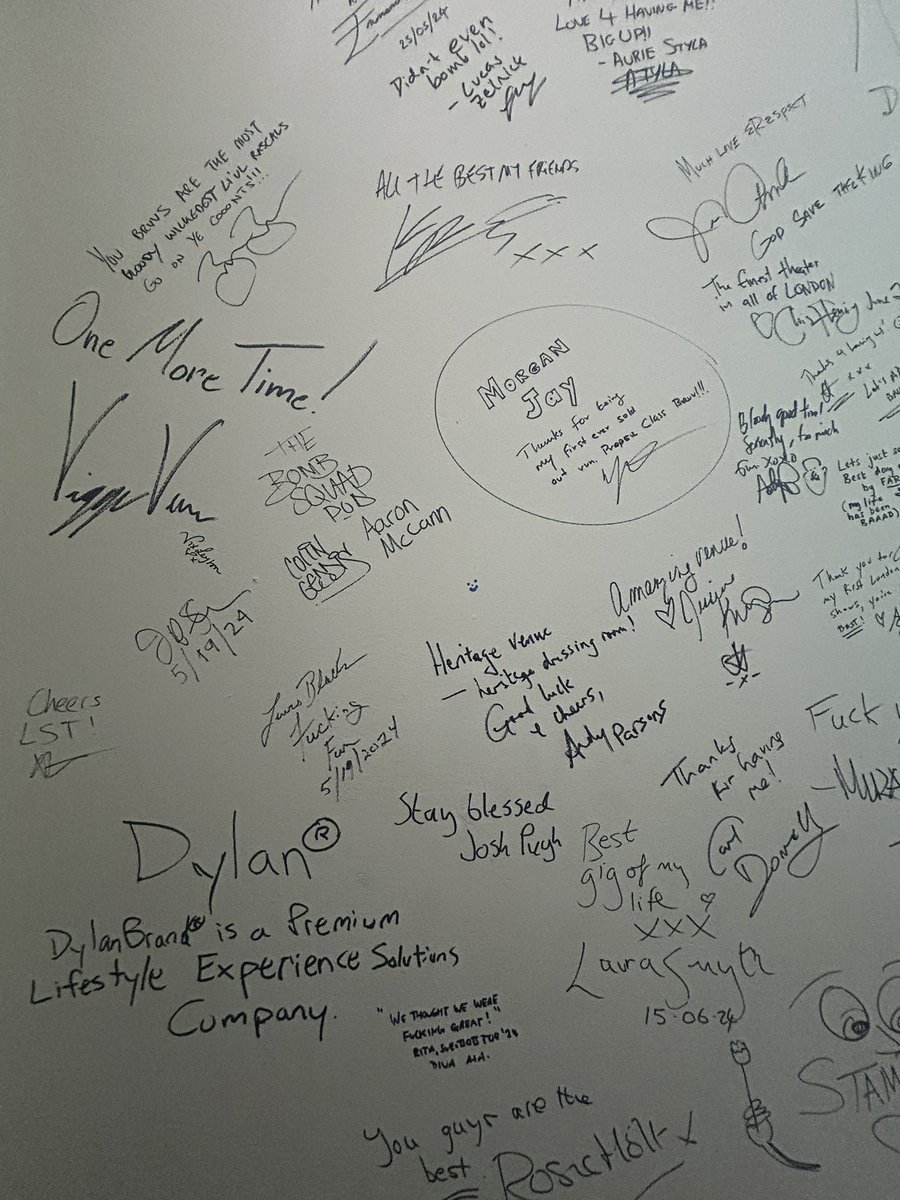 25/05/24
Didn't even
bomb lol!
- Lucas
Zelnick
LOVE 4 HAVING ME!!
BIG UP!!
- AURIE STYLA
YOU BRUVS ARE THE MOST
BLOODY WICKEDEST LI'UL RASCALS
GO ON YE COOONTS!!!
ALL THE BEST MY FRIENDS
xxx
MUCH LOVE & RESPECT
GOD SAVE THE KING
The finest theater
in all of LONDON
Chris Fleming June
One More Time!
Viggo Venn
MORGAN
JAY
Thanks for being
my first ever sold
out run. Proper Class Bruv!!!
Thanks 4 having us!
xxx
Bloody good time!
Seriously, too much
fun xoxo
Lets just say
Best day
by FAR
(my life
has been
BAAAD)
THE
BOMB
SQUAD
POD
COLIN
GEDDIS
Aaron
McCann
5/19/24
Amazing venue!
Thank you for
my first London
shows, you're
BEST!
Heritage venue
- heritage dressing room!
Good luck
& cheers,
Andy Parsons
Cheers
LST!
Lewis Black
Fucking
Fun
5/19/2024
Thanks
for having
me!
Carl
Donnelly
Fuck
Stay blessed
Josh Pugh
Dylan®
DylanBrand® is a Premium
Lifestyle Experience Solutions
Company.
Best
gig of my
life
XXX
Laura Smyth
15.06.24
"WE THOUGHT WE WERE
FUCKING GREAT!"
You guys are the
best
Rosie Holt x